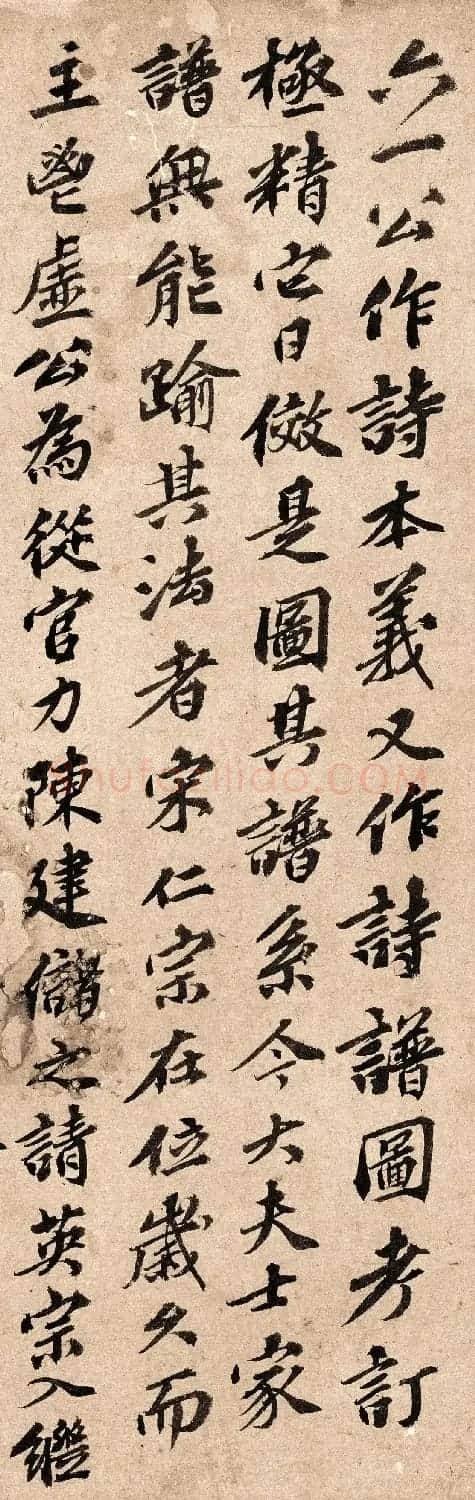 六一公作詩本義又作詩譜圖考訂
極精它日傚是圖其譜系今大夫士家
譜無能踰其法者宋仁宗在位歲久而
主鬯虛公為從官力陳建儲之請英宗入繼